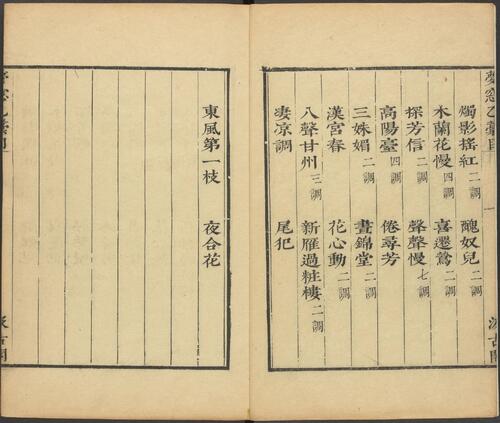 燭影搖紅二調 醜奴兒二調
木蘭花慢四調 喜遷鶯二調
探芳信二調 聲聲慢七調
高陽臺四調 倦尋芳
三姝媚二調 晝錦堂二調
漢宮春 花心動二調
八聲甘州三調 新雁過粧樓二調
凄凉調 尾犯
東風第一枝 夜合花